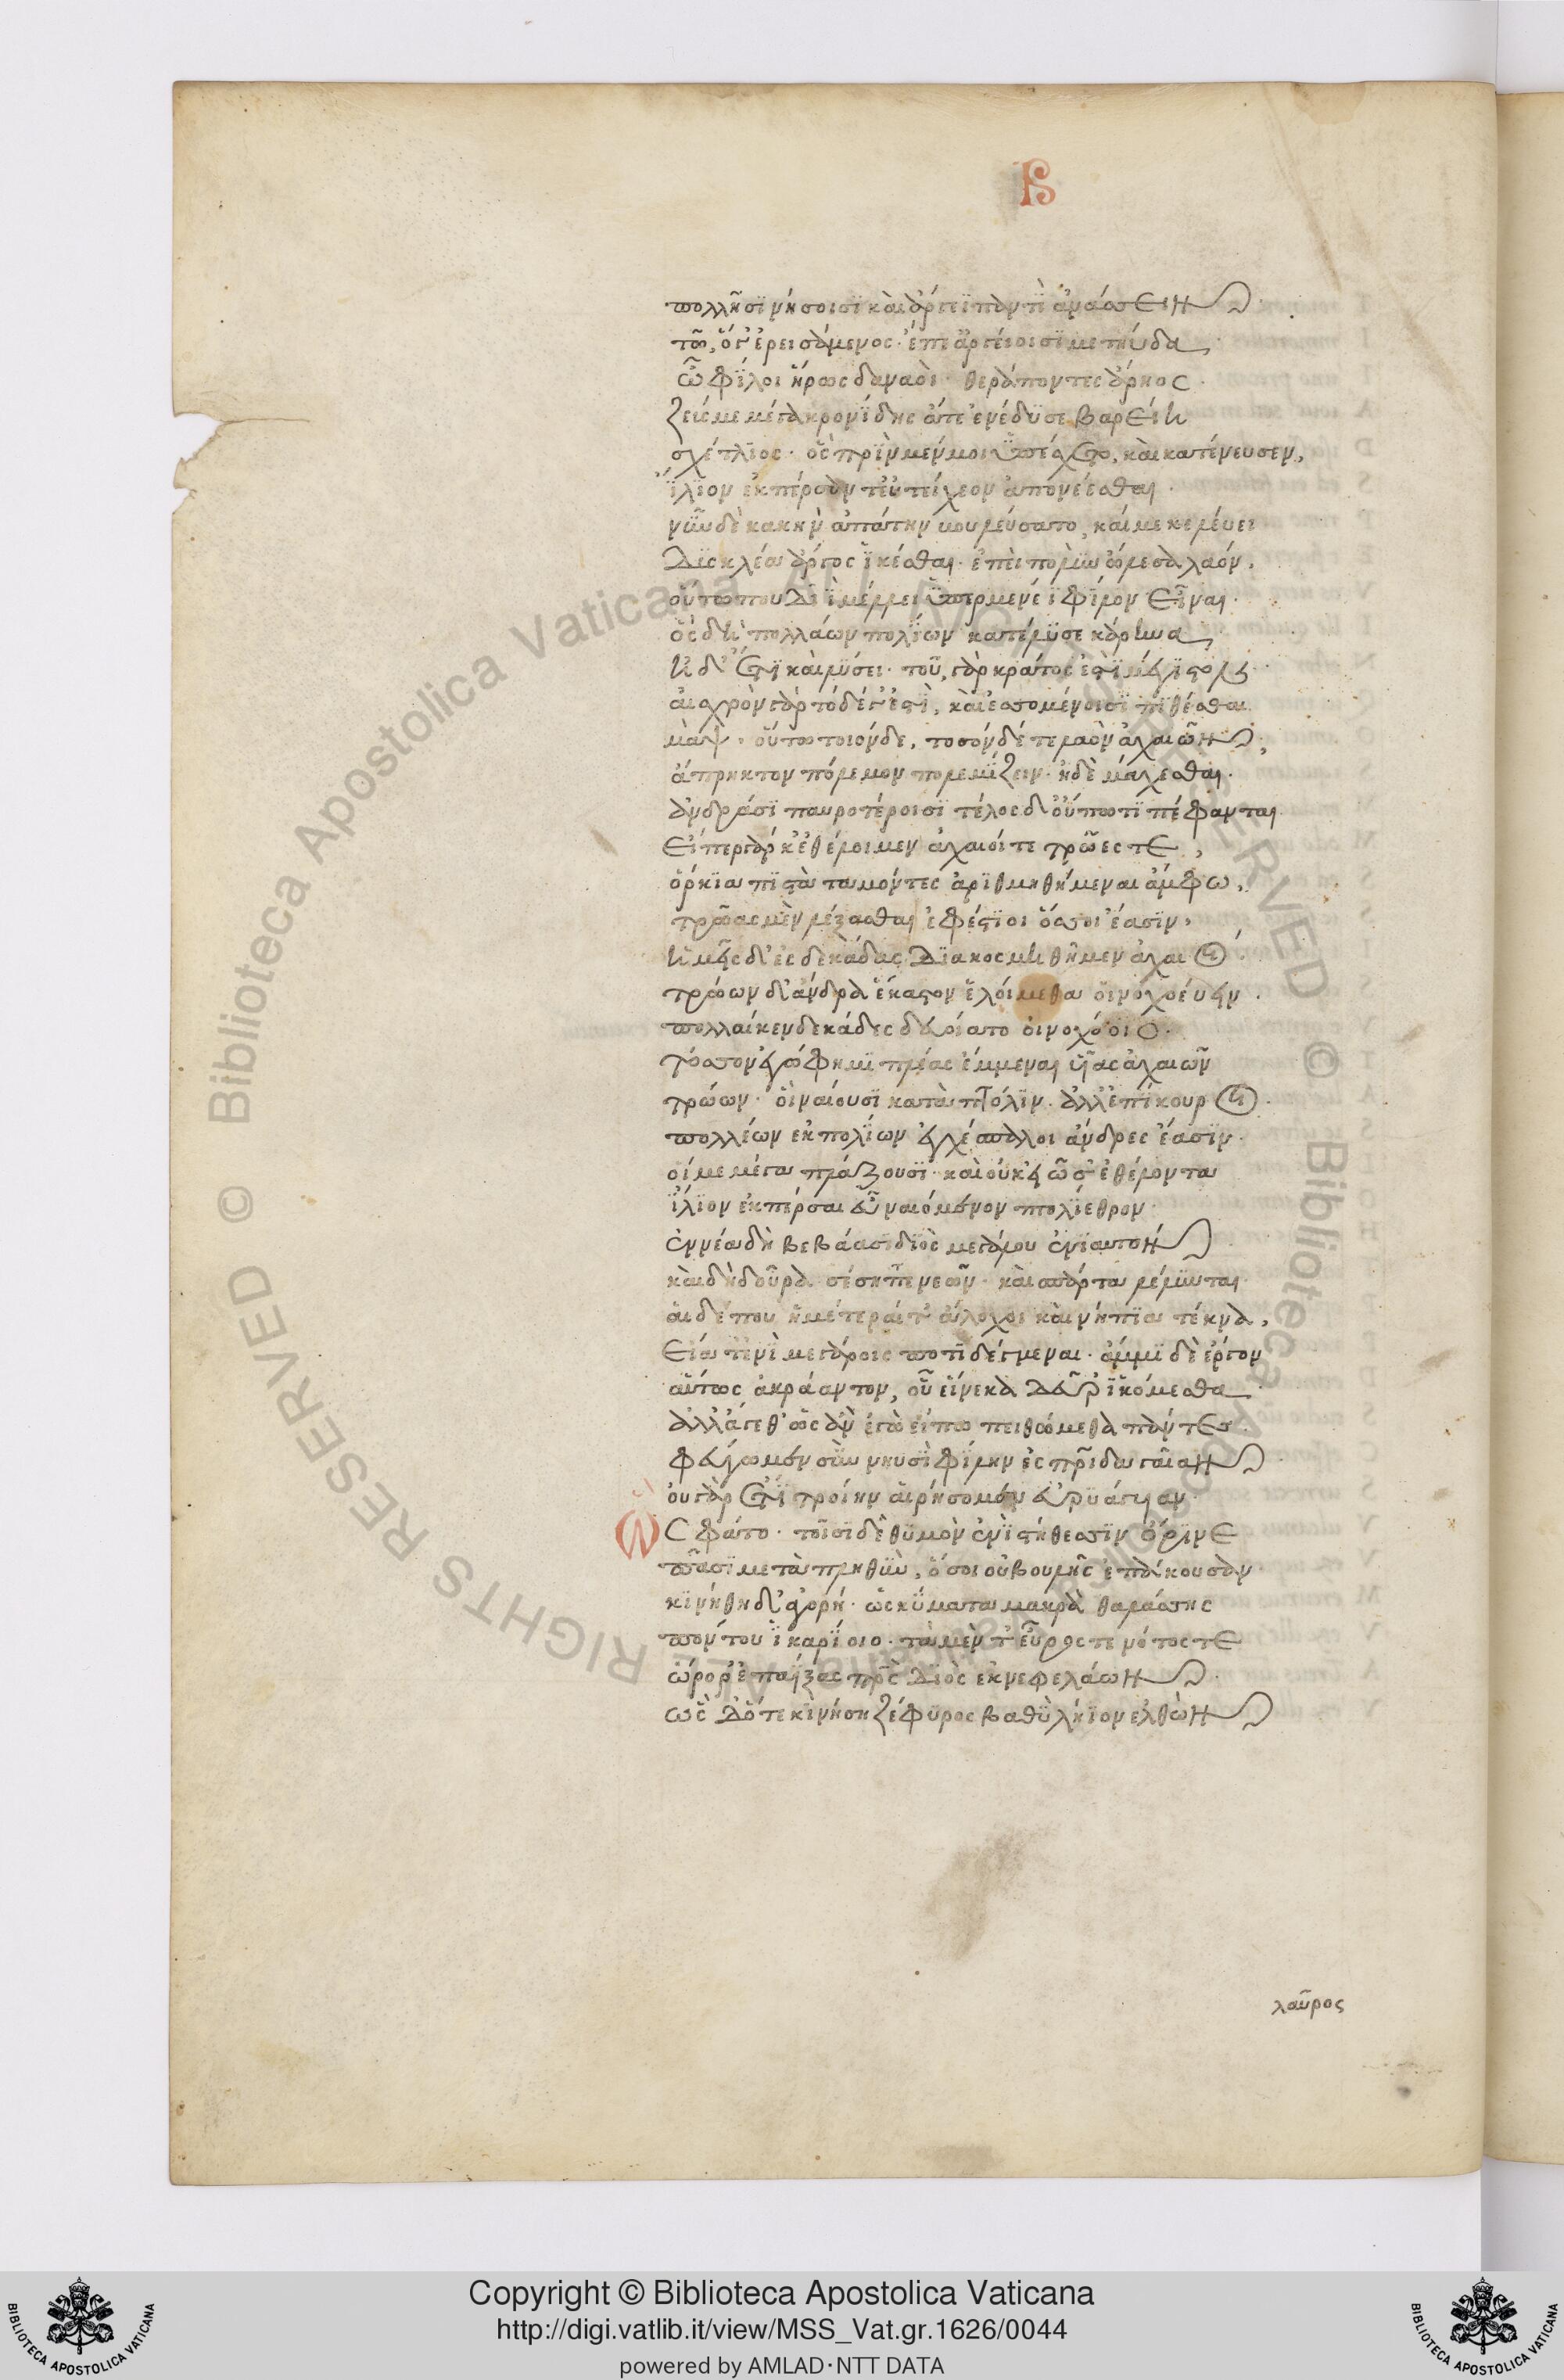 Β
πολλῆσϊ νήσοισϊ καὶ ἄργεϊ παντὶ ἀνάσσειν
τῶ, ὅγ' ἐρεισάμενος· ἔπε' ἀργείοισϊ μετηύδα
ὦ φίλοι ἥρωες δαναοὶ· θεράποντες ἄρηος·
ζεύς με μέγα κρονίδης ἄτη ἐνέδησε βαρείη
σχέτλιος· ὃς πρὶν μέν μοι ὑπέσχετο, καὶ κατένευσεν,
ἴλιον ἐκπέρσαντ' εὐτείχεον ἀπονέεσθαι·
νῦν δὲ κακὴν ἀπάτην βουλεύσατο, καί με κελεύει
δυσκλέα ἄργος ἱκέσθαι· ἐπεὶ πολὺν ὤλεσα λαόν,
οὕτω που διῒ μέλλει ὑπερμενέϊ φίλον εἶναι·
ὃς δὴ πολλάων πολίων κατέλυσε κάρηνα
ἠδ' ἔτι καὶ λύσει· τοῦ γὰρ κράτος ἐστὶ μέγιστον·
αἰσχρὸν γὰρ τόδέ γ' ἐστὶ, καὶ ἐσσομένοισϊ πυθέσθαι
μὰψ· οὕτω τοιόνδε, τοσόνδέ τε λαὸν ἀχαιῶν,
ἄπρηκτον πόλεμον πολεμίζειν· ἠδὲ μάχεσθαι·
ἀνδράσϊ παυροτέροισϊ τέλος δ' οὔπω τϊ πέφανται
εἴπερ γάρ κ' ἐθέλοιμεν ἀχαιοί τε τρῶες τε,
ὅρκια πιστὰ ταμόντες ἀριθμηθήμεναι ἄμφω,
τρῶας μὲν λέξασθαι ἐφέστιοι ὅσσοι ἔασϊν,
ἡμεῖς δ' ἐς δεκάδας διακοσμηθῆμεν ἀχαιοί
τρώων δ' ἄνδρα ἕκαστον ἑλοίμεθα οἰνοχοεύειν·
πολλαί κεν δεκάδες δευοίατο οἰνοχόοιο·
τόσσον ἐγώ φημϊ πλέας ἔμμεναι υἷας ἀχαιῶν
τρώων· οἳ ναίουσϊ κατὰ πτόλϊν· ἀλλ' ἐπίκουροι·
πολλέων ἐκ πολίων ἐγχέσπαλοι ἄνδρες ἔασϊν·
οἵ με μέγα πλάζουσϊ· καὶ οὐκ εἰῶσ' ἐθέλοντα
ἴλϊον ἐκπέρσαι εὖ ναιόμενον πτολίεθρον·
ἐννέα δὴ βεβάασϊ διὸς μεγάλου ἐνιαυτοὶ
καὶ δὴ δοῦρα σέσηπε νεῶν· καὶ σπάρτα λέλυνται·
αἱ δέ που ἡμέτεραί τ' ἄλοχοι καὶ νήπια τέκνα,
εἵατ' ἐνὶ μεγάροις ποτιδέγμεναι· ἄμμϊ δὲ ἔργον
αὕτως ἀκράαντον, οὗ εἵνεκα δεῦρ' ἱκόμεσθα
ἀλλ' ἄγεθ' ὡς ἂν ἐγὼ εἴπω πειθώμεθα πάντες·
φεύγωμεν σὺν νηυσὶ φίλην ἐς πρῖδα γαῖαν
οὐ γὰρ ἔτι τροίην αἱρήσομεν εὐρυάγυιαν·
Ὣς φάτο· τοῖσϊ δὲ θυμὸν ἐνὶ στήθεσσϊν ὄρινε
πᾶσϊ μετὰ πληθὺν, ὅσοι οὐ βουλῆς ἐπάκουσαν
κινήθη δ' ἀγορή· ὡς κύματα μακρὰ θαλάσσης
πόντου ἰκαρίοιο· τὰ μέν τ' εὖρός τε νότος τε
ὤρορ' ἐπαΐξας πρς διὸς ἐκ νεφελάων·
ὡς δ' ὅτε κινήση ζέφυρος βαθὺ λήϊον ἐλθὼν
λαῦρος
Copyright © Biblioteca Apostolica Vaticana
http://digi.vatlib.it/view/MSS_Vat.gr.1626/0044
powered by AMLAD·NTT DATA